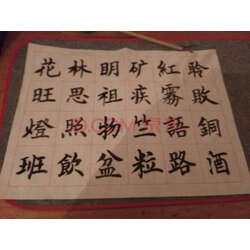 花林明矿紅聆
旺思祖疾霧敗
燈照物竺語銅
班飲盆粒路酒